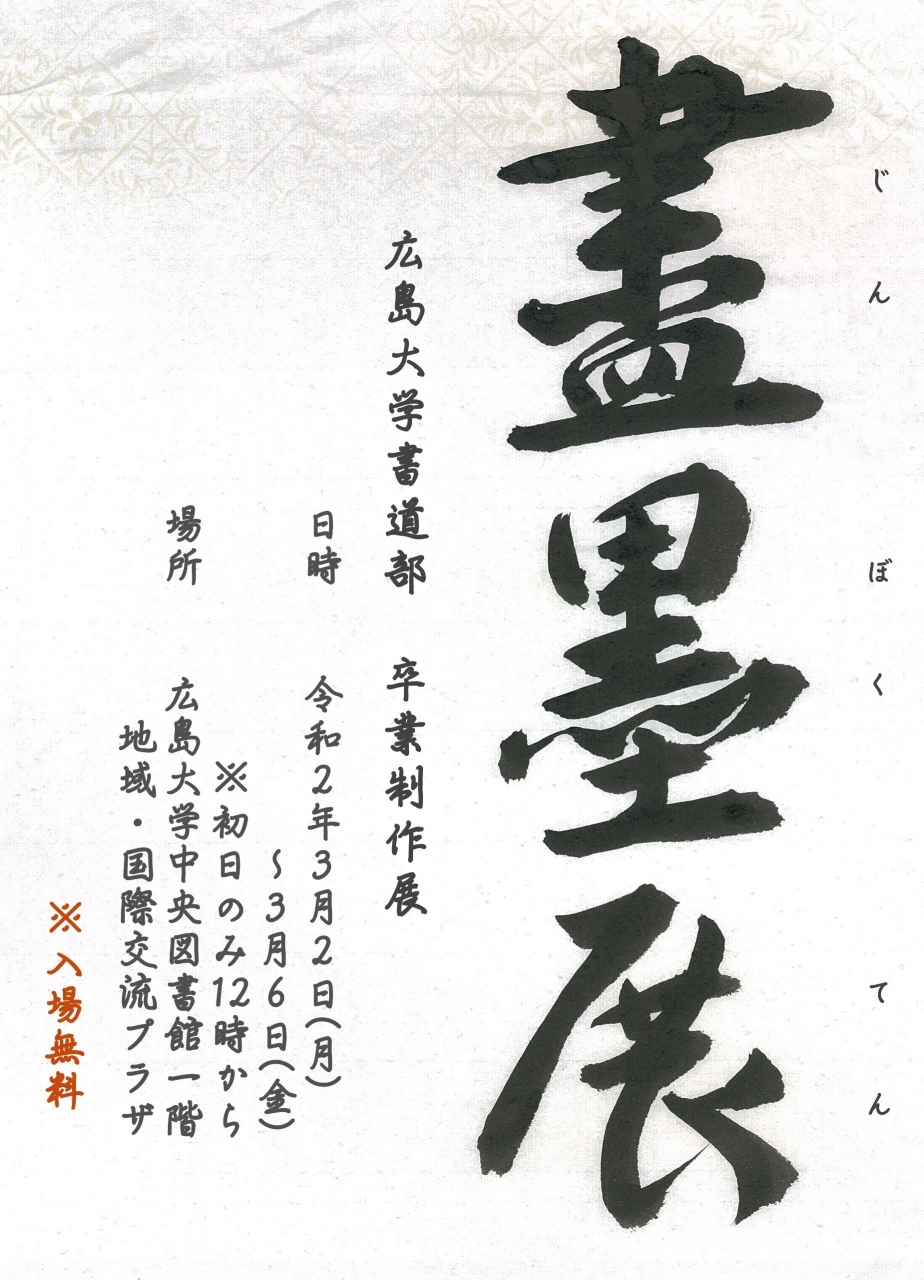 じんぼくてん
盡墨展
広島大学書道部 卒業制作展
日時 令和2年3月2日(月)
～3月6日(金)
※初日のみ12時から
場所 広島大学中央図書館一階
地域・国際交流プラザ
※入場無料